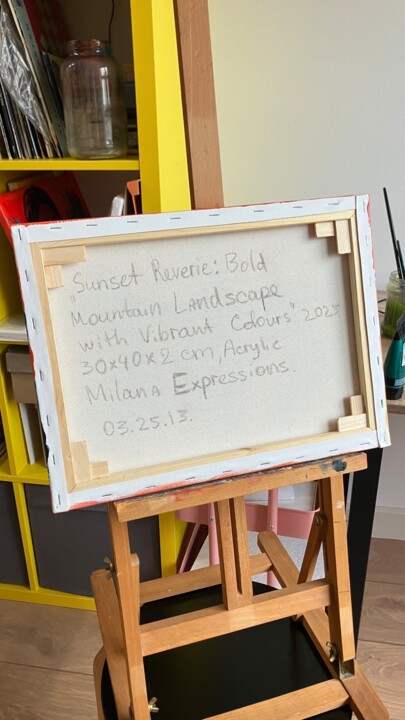 "Sunset Reverie: Bold
Mountain Landscape
with Vibrant Colours" 2025
30x40x2 cm, Acrylic
Milana Expressions.
03.25.13.